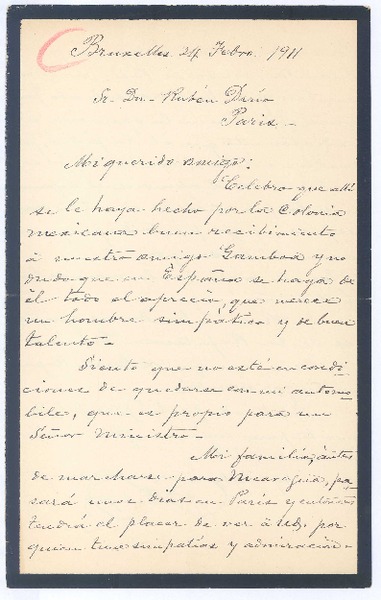 Bruxelles 24 Febro. 1911
Sr. Dn. Rubén Darío
Paris.-
Mi querido amigo:
Celebro que allí
se le haya hecho por la Colonia
mexicana buen recibimiento
á nuestro amigo Gamboa y no
dudo que en España se haga de
él todo el aprecio, que merece
un hombre simpático y de buen
talento.-
Siento que no esté en condi-
ciones de quedarse con mi automo-
bile, que es propio para un
Señor Ministro.-
Mi familia, antes
de marcharse para Nicaragua, pa-
sará unos dias en Paris y entonces
tendrá el placer de ver á Ud. por
quien tiene simpatías y admiración.-